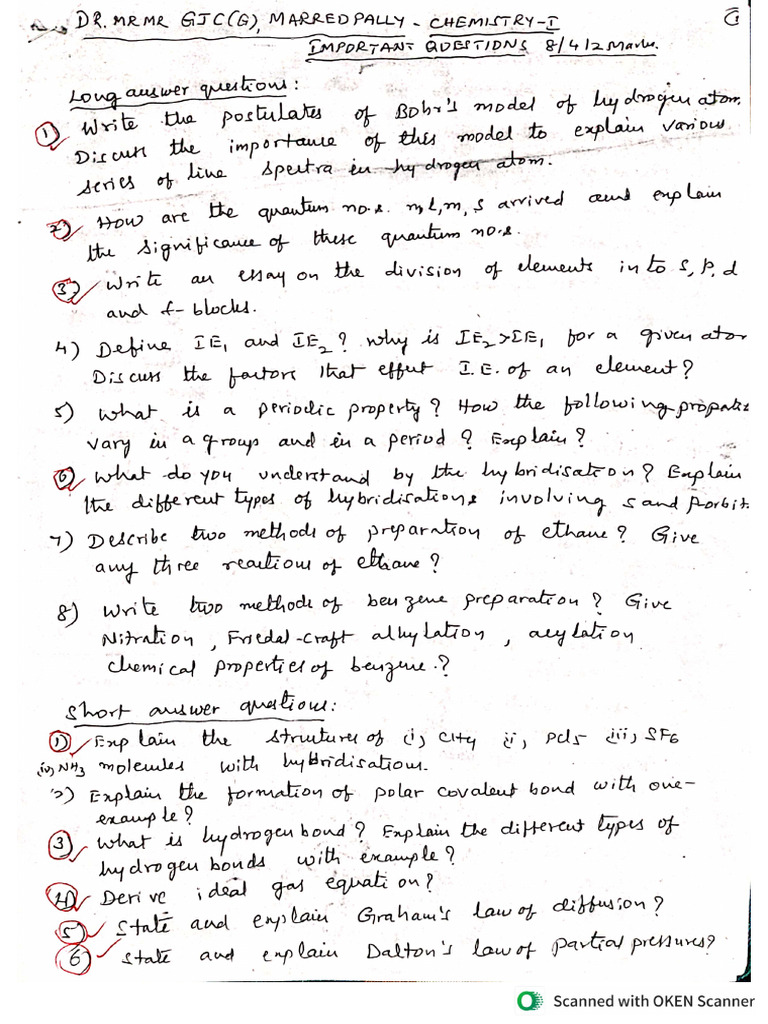 DR. MRMR GJC(G), MARREDPALLY - CHEMISTRY-I
IMPORTANT QUESTIONS 8/4/2 Marks.
Long answer questions:
1) Write the postulates of Bohr's model of hydrogen atom.
Discuss the importance of this model to explain various
series of line spectra in hydrogen atom.
2) How are the quantum no.s. n, l, m, s arrived and explain
the significance of these quantum no.s.
3) Write an essay on the division of elements in to s, p, d
and f-blocks.
4) Define IE1 and IE2? Why is IE2>IE1 for a given ator
Discuss the factors that effect I.E. of an element?
5) What is a periodic property? How the following
vary in a group and in a period? Explain?
6) What do you understand by the hybridisation? Explain
the different types of hybridisations involving s and p orbit.
7) Describe two methods of preparation of ethane? Give
any three reactions of ethane?
8) Write two methods of benzene preparation? Give
Nitration, Friedal-craft alkylation, acylation
chemical properties of benzene.?
Short answer questions:
1) Explain the structures of i, CH4 ii, PCl5 iii, SF6
iv, NH3 molecules with hybridisations.
2) Explain the formation of polar covalent bond with one-
example?
3) What is hydrogen bond? Explain the different types of
hydrogen bonds with example?
4) Derive ideal gas equation?
5) State and explain Graham's law of diffusion?
6) State and explain Dalton's law of partial pressures?
Scanned with OKEN Scanner